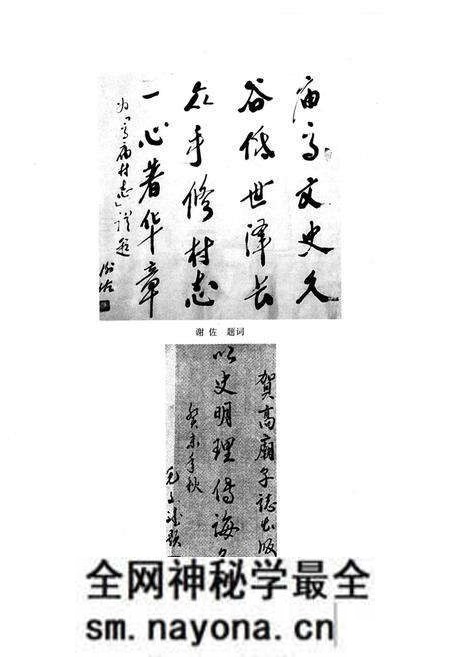 庙高文史久
谷低世泽长
众手修村志
一心著华章
为「高庙村志」谨题
谢佐
谢佐 题词
贺高庙子志出版
以史明理传海
癸未年秋
毛文斌题
全网神秘学最全
sm.nayona.cn